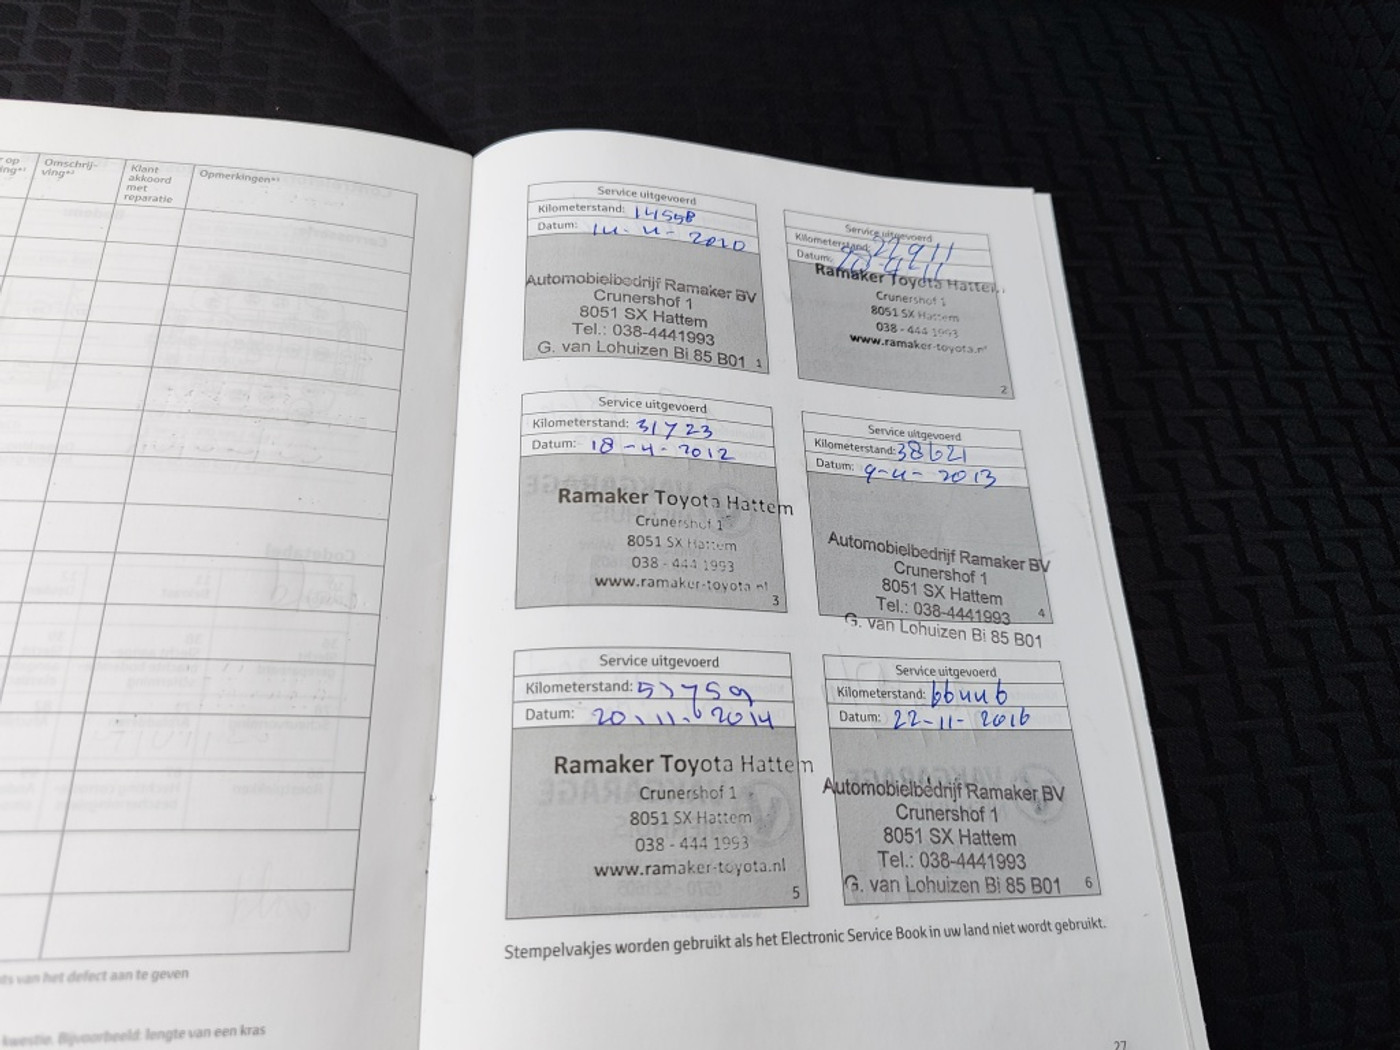 op
Omschrij-
ving*²
Klant
akkoord
met
reparatie
Opmerkingen*³
ts van het defect aan te geven
kwestie. Bijvoorbeeld: lengte van een kras
Service uitgevoerd
Kilometerstand: 14598
Datum: 14-4-2010
Automobielbedrijf Ramaker BV
Crunershof 1
8051 SX Hattem
Tel.: 038-4441993
G. van Lohuizen Bi 85 B01
1
Service uitgevoerd
Kilometerstand: 22911
Datum:
Ramaker Toyota Hattem
Crunershof 1
8051 SX Hattem
038 - 444 1993
www.ramaker-toyota.nl
2
Service uitgevoerd
Kilometerstand: 31723
Datum: 18-4-2012
Ramaker Toyota Hattem
Crunershof 1
8051 SX Hattem
038 - 444 1993
www.ramaker-toyota.nl
3
Service uitgevoerd
Kilometerstand: 38621
Datum: 9-4-2013
Automobielbedrijf Ramaker BV
Crunershof 1
8051 SX Hattem
Tel.: 038-4441993
G. van Lohuizen Bi 85 B01
4
Service uitgevoerd
Kilometerstand: 53759
Datum: 20-11-2014
Ramaker Toyota Hattem
Crunershof 1
8051 SX Hattem
038 - 444 1993
www.ramaker-toyota.nl
5
Service uitgevoerd
Kilometerstand: 66446
Datum: 22-11-2016
Automobielbedrijf Ramaker BV
Crunershof 1
8051 SX Hattem
Tel.: 038-4441993
G. van Lohuizen Bi 85 B01
6
Stempelvakjes worden gebruikt als het Electronic Service Book in uw land niet wordt gebruikt.
27